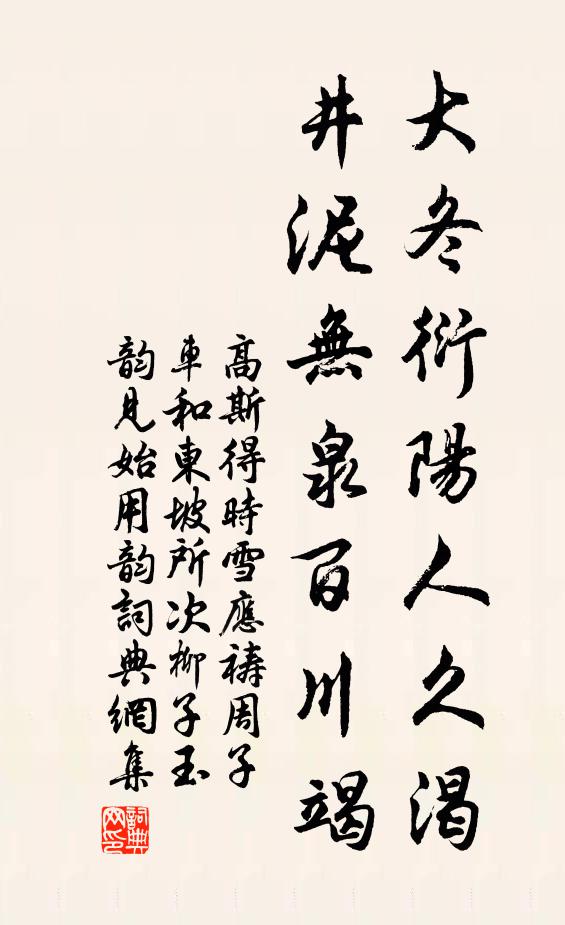 大冬衍陽人久渴
井泥無泉百川竭
高斯得時雪應禱周子
車和東坡所次柳子玉
韵見始用韵詞典網集
詞典網印